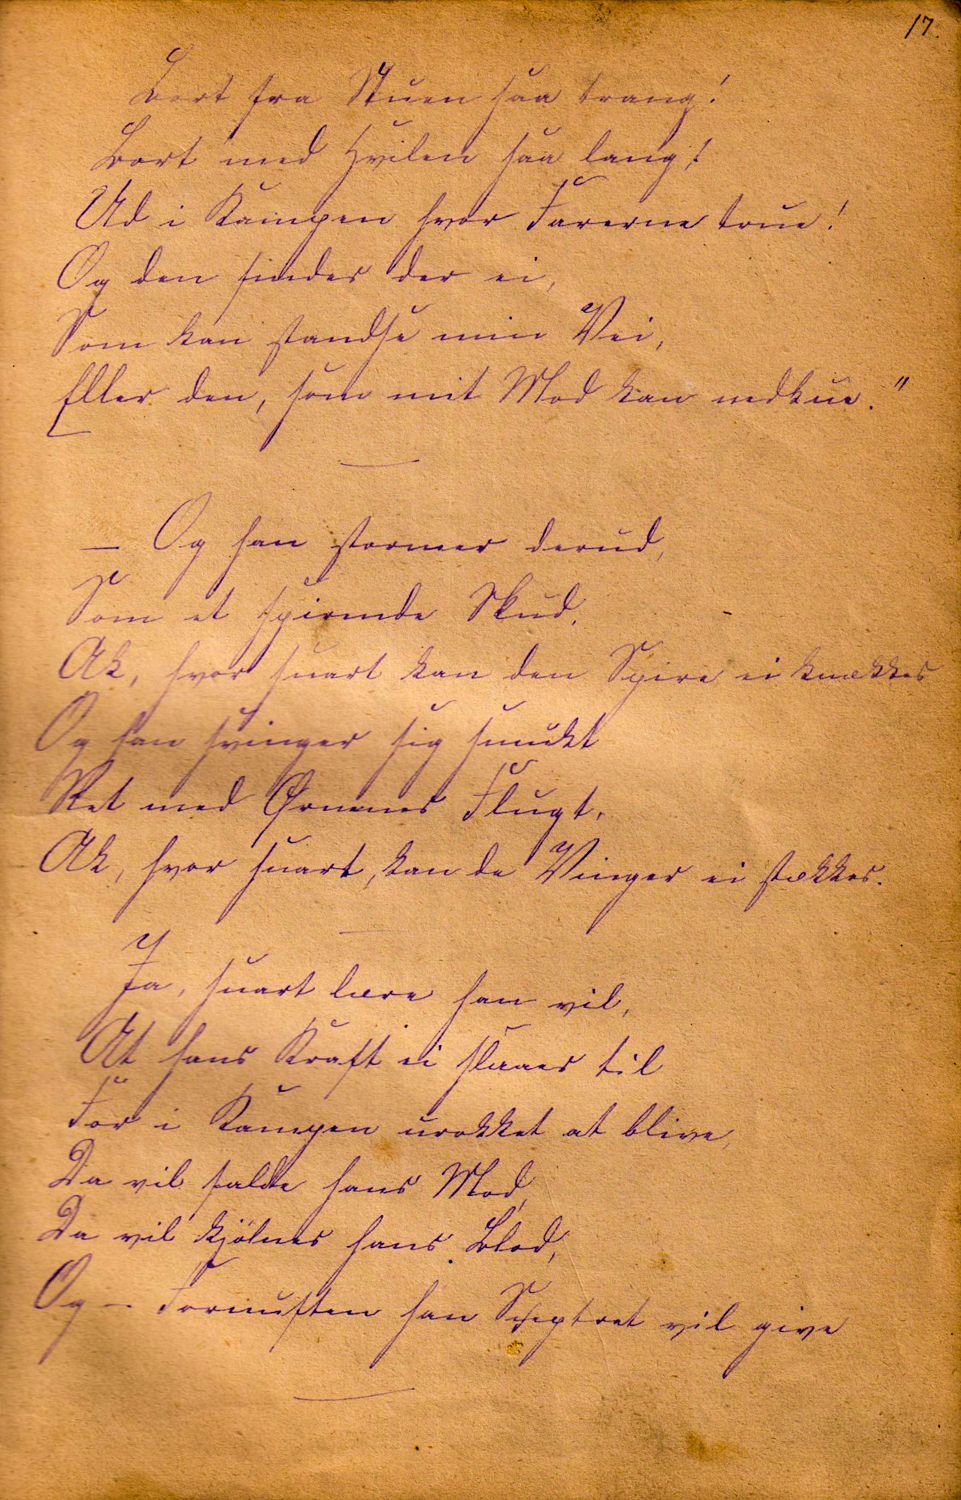 17.
Bort fra Stuen saa trang!
Bort med Hvilen saa lang!
Ud i Kampen hvor Farerne true!
Og den findes der ei,
Som kan standse min Vei,
Eller den, som mit Mod kan nedkue."
— Og han stormer derud,
Som et spirende Skud,
Ak, hvor snart kan den Spire ei knækkes
Og han svinger sig smukt
Ret med Ørnenes Flugt,
Ak, hvor snart, kan de Vinger ei stækkes.
Ja, snart lære han vil,
At hans Kraft ei slaaer til
For i Kampen urokket at blive,
Da vil falde hans Mod,
Da vil kjölnes hans Blod,
Og — Fornuften han Sceptret vil give